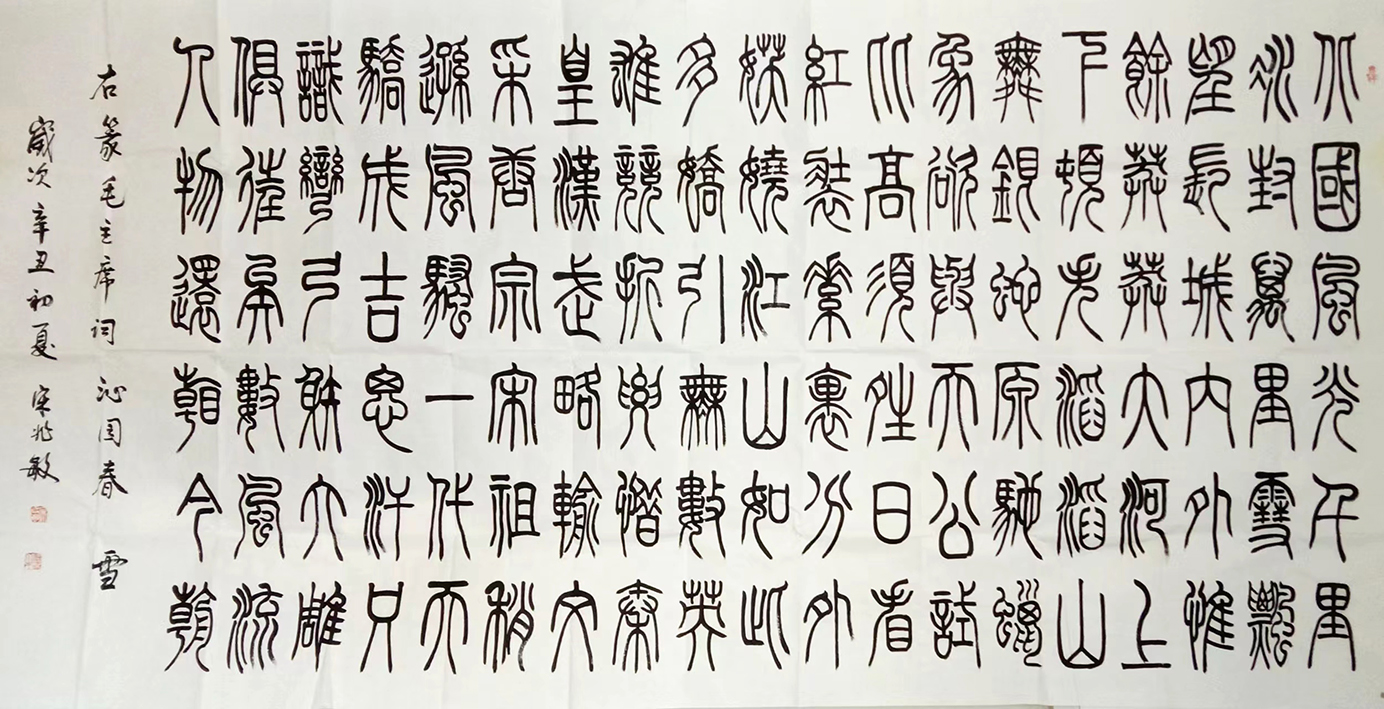 北國風光千里
冰封萬里雪飄
望長城內外惟
餘莽莽大河上
下頓失滔滔山
舞銀蛇原馳蠟
象欲與天公試
比高須晴日看
紅裝素裹分外
妖嬈江山如此
多嬌引無數英
雄競折腰惜秦
皇漢武略輸文
采唐宗宋祖稍
遜風騷一代天
驕成吉思汗只
識彎弓射大雕
俱往矣數風流
人物還看今朝
右篆毛主席词沁园春雪
歲次辛丑初夏宋兆敏